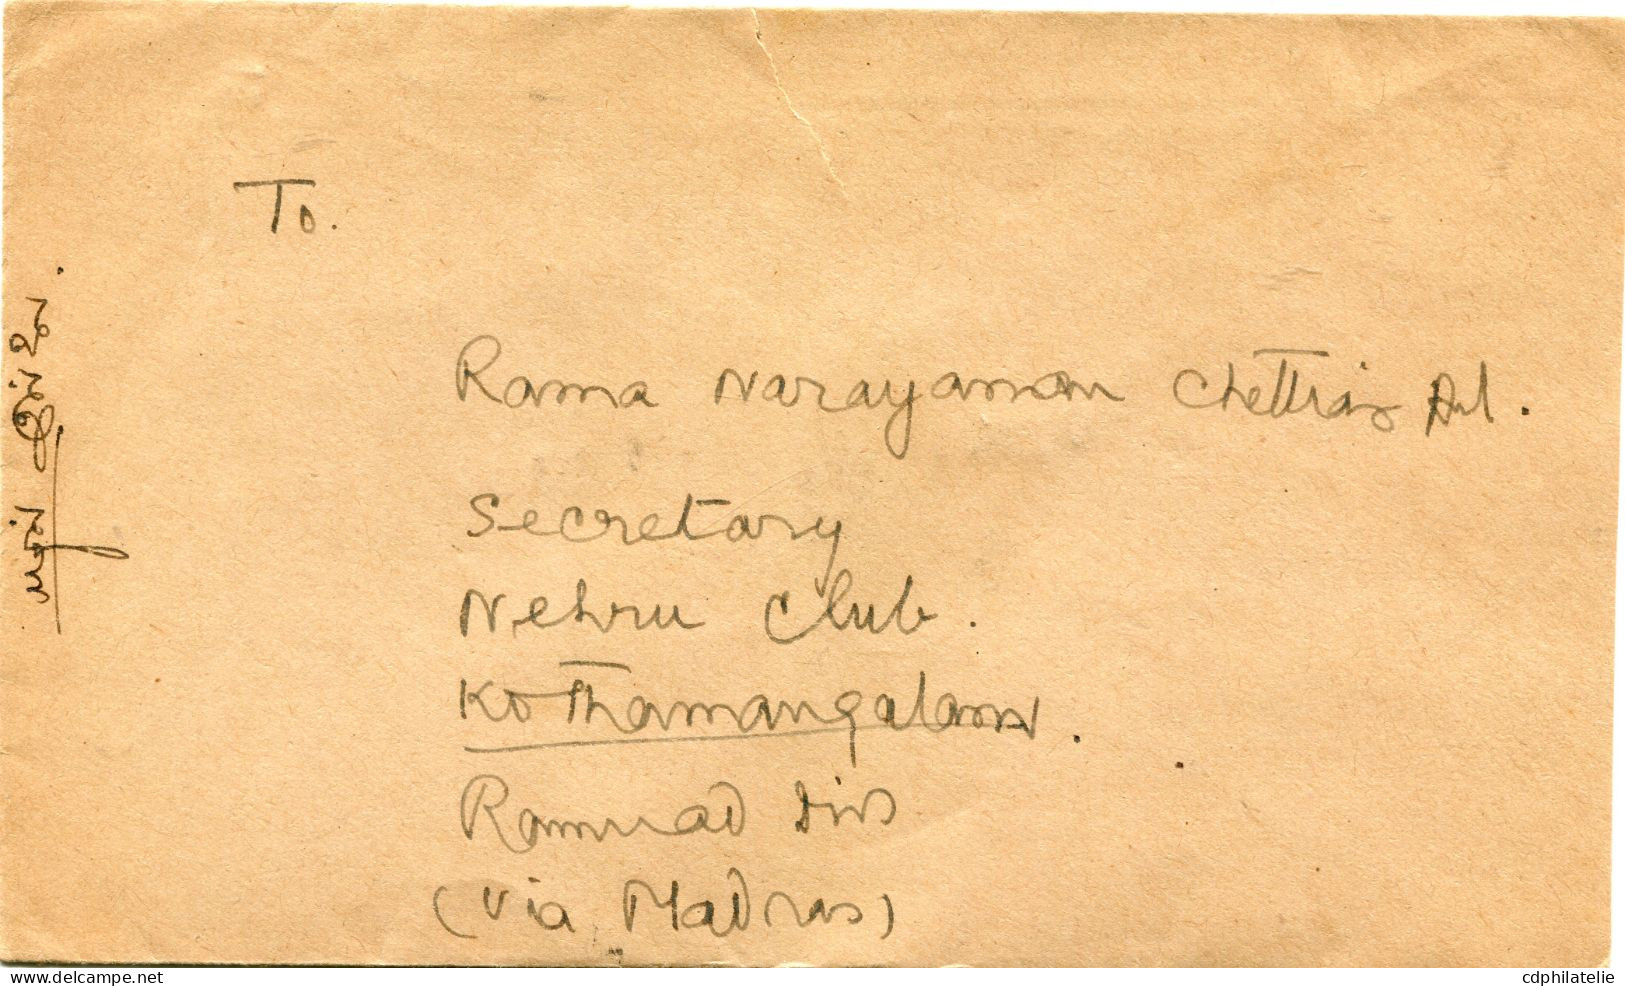 To.
Rama Narayanan Chettiar Avl.
Secretary
Nehru Club.
Kothamangalam.
Ramnad Dis
(via Madras)
www.delcampe.net
cdphilatelie